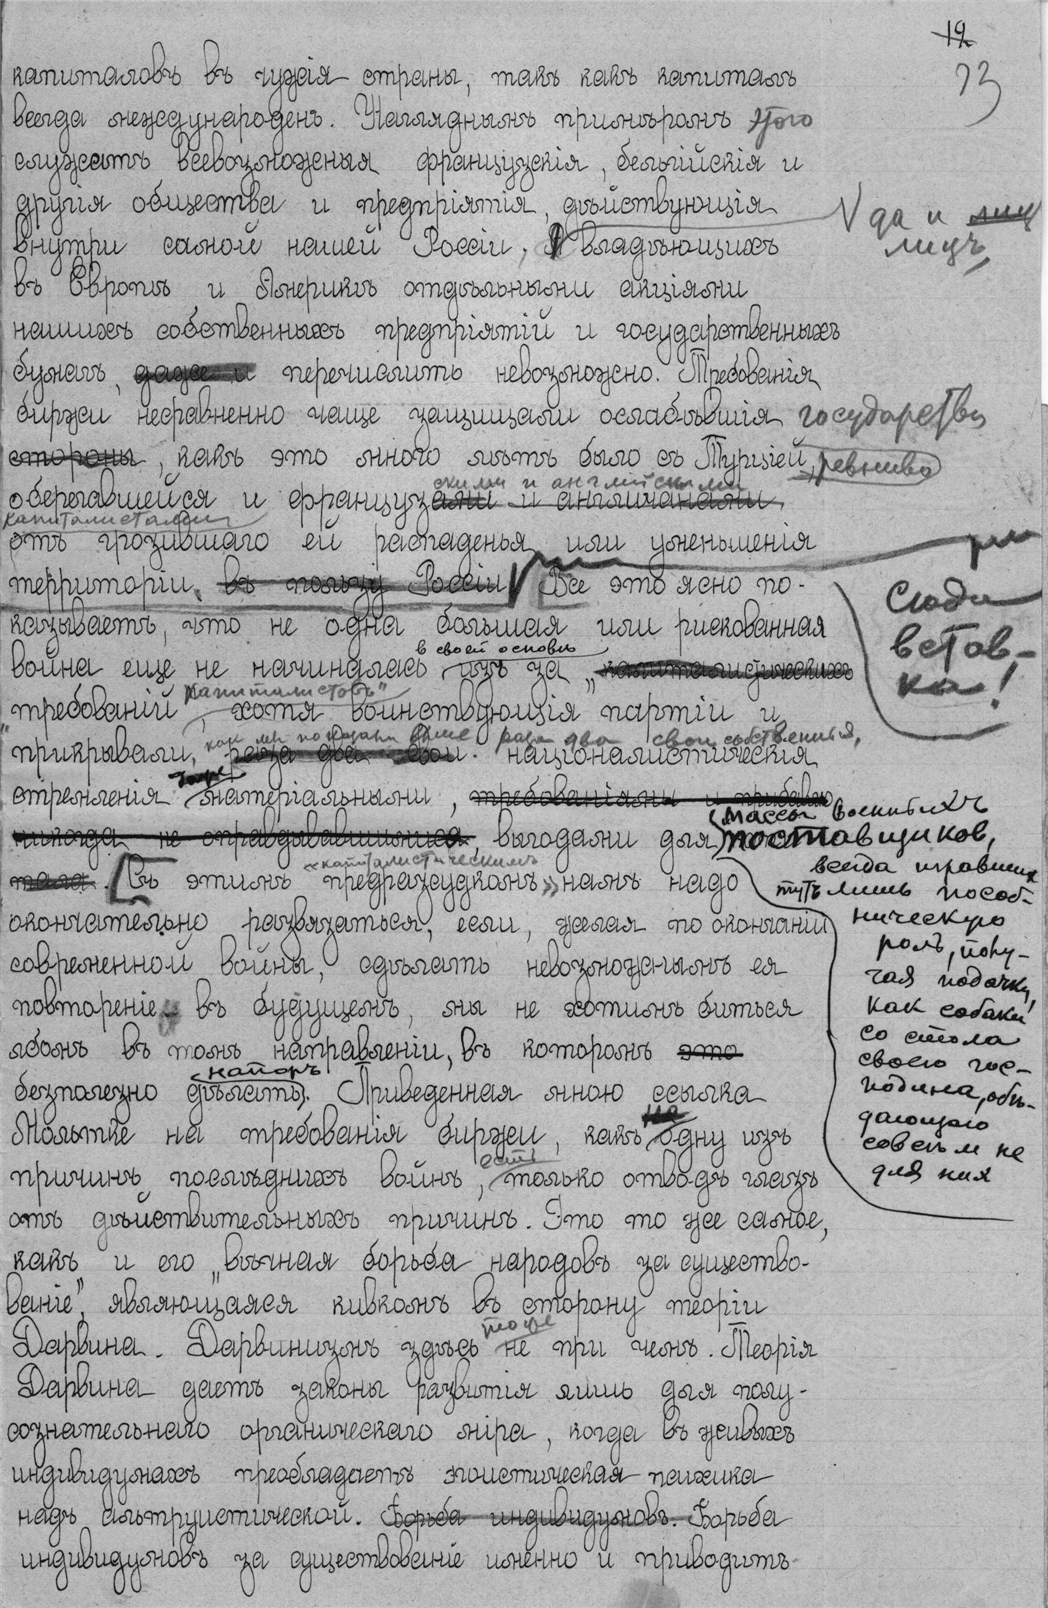 12
13
капиталовъ въ чужія страны, такъ какъ капиталъ
всегда международенъ. Нагляднымъ примѣромъ этого
служатъ всевозможныя французскія, бельгійскія и
другія общества и предпріятія, дѣйствующія
внутри самой нашей Россіи, владѣющихъ
да и лиц
лицъ,
въ Европѣ и Америкѣ отдѣльными акціями
нашихъ собственныхъ предпріятій и государственныхъ
бумагъ, даже и перечислить невозможно. Требованія
биржи несравненно чаще защищали ослабѣвшія государства
стороны, какъ это много лѣтъ было съ Турціей, ревниво
скими и английскими
оберегавшейся и французами и англичанами
капиталистами
отъ грозившаго ей распаденья или уменьшенія
территоріи въ пользу Россіи. Все это ясно по-
Сюда
встав-
ка!
казываетъ, что не одна большая или рискованная
в своей основе
война еще не начиналась изъ за „капиталистическихъ
капиталистовъ"
требованій, хотя воинствующія партіи и
как мы показали выше раза два свои собственныя,
прикрывали, раза два свои националистическія
стремленія матеріальными, требованіями и прибавлю
никогда не оправдывавшимися, выгодами для
массы военныхъ
поставщиков,
всегда игравших
тутъ лишь пособ-
ническую
роль, полу-
чая подачку,
как собаки
со стола
своего гос-
подина, обѣ-
дающаго
совсѣм не
для них
„капиталистическимъ
тала. Съ этимъ предразсудкомъ" намъ надо
окончательно развязаться, если, желая по окончаніи
современной войны, сдѣлать невозможнымъ ея
повтореніе въ будущемъ, мы не хотимъ биться
лбомъ въ томъ направленіи, въ которомъ это
напоръ
безполезно дѣлать. Приведенная мною ссылка
на
Мольтке на требованія биржи, какъ одну изъ
есть
причинъ послѣднихъ войнъ, только отводъ глазъ
отъ дѣйствительныхъ причинъ. Это то же самое,
какъ и его „вѣчная борьба народовъ за существо-
ваніе", являющаяся кивкомъ въ сторону теоріи
тоже
Дарвина. Дарвинизмъ здѣсь не при чемъ. Теорія
Дарвина даетъ законы развитія лишь для полу-
сознательнаго органическаго міра, когда въ живыхъ
индивидумахъ преобладаетъ эгоистическая психика
надъ альтруистической. Борьба индивидумовъ. Борьба
индивидумовъ за существованіе именно и приводитъ